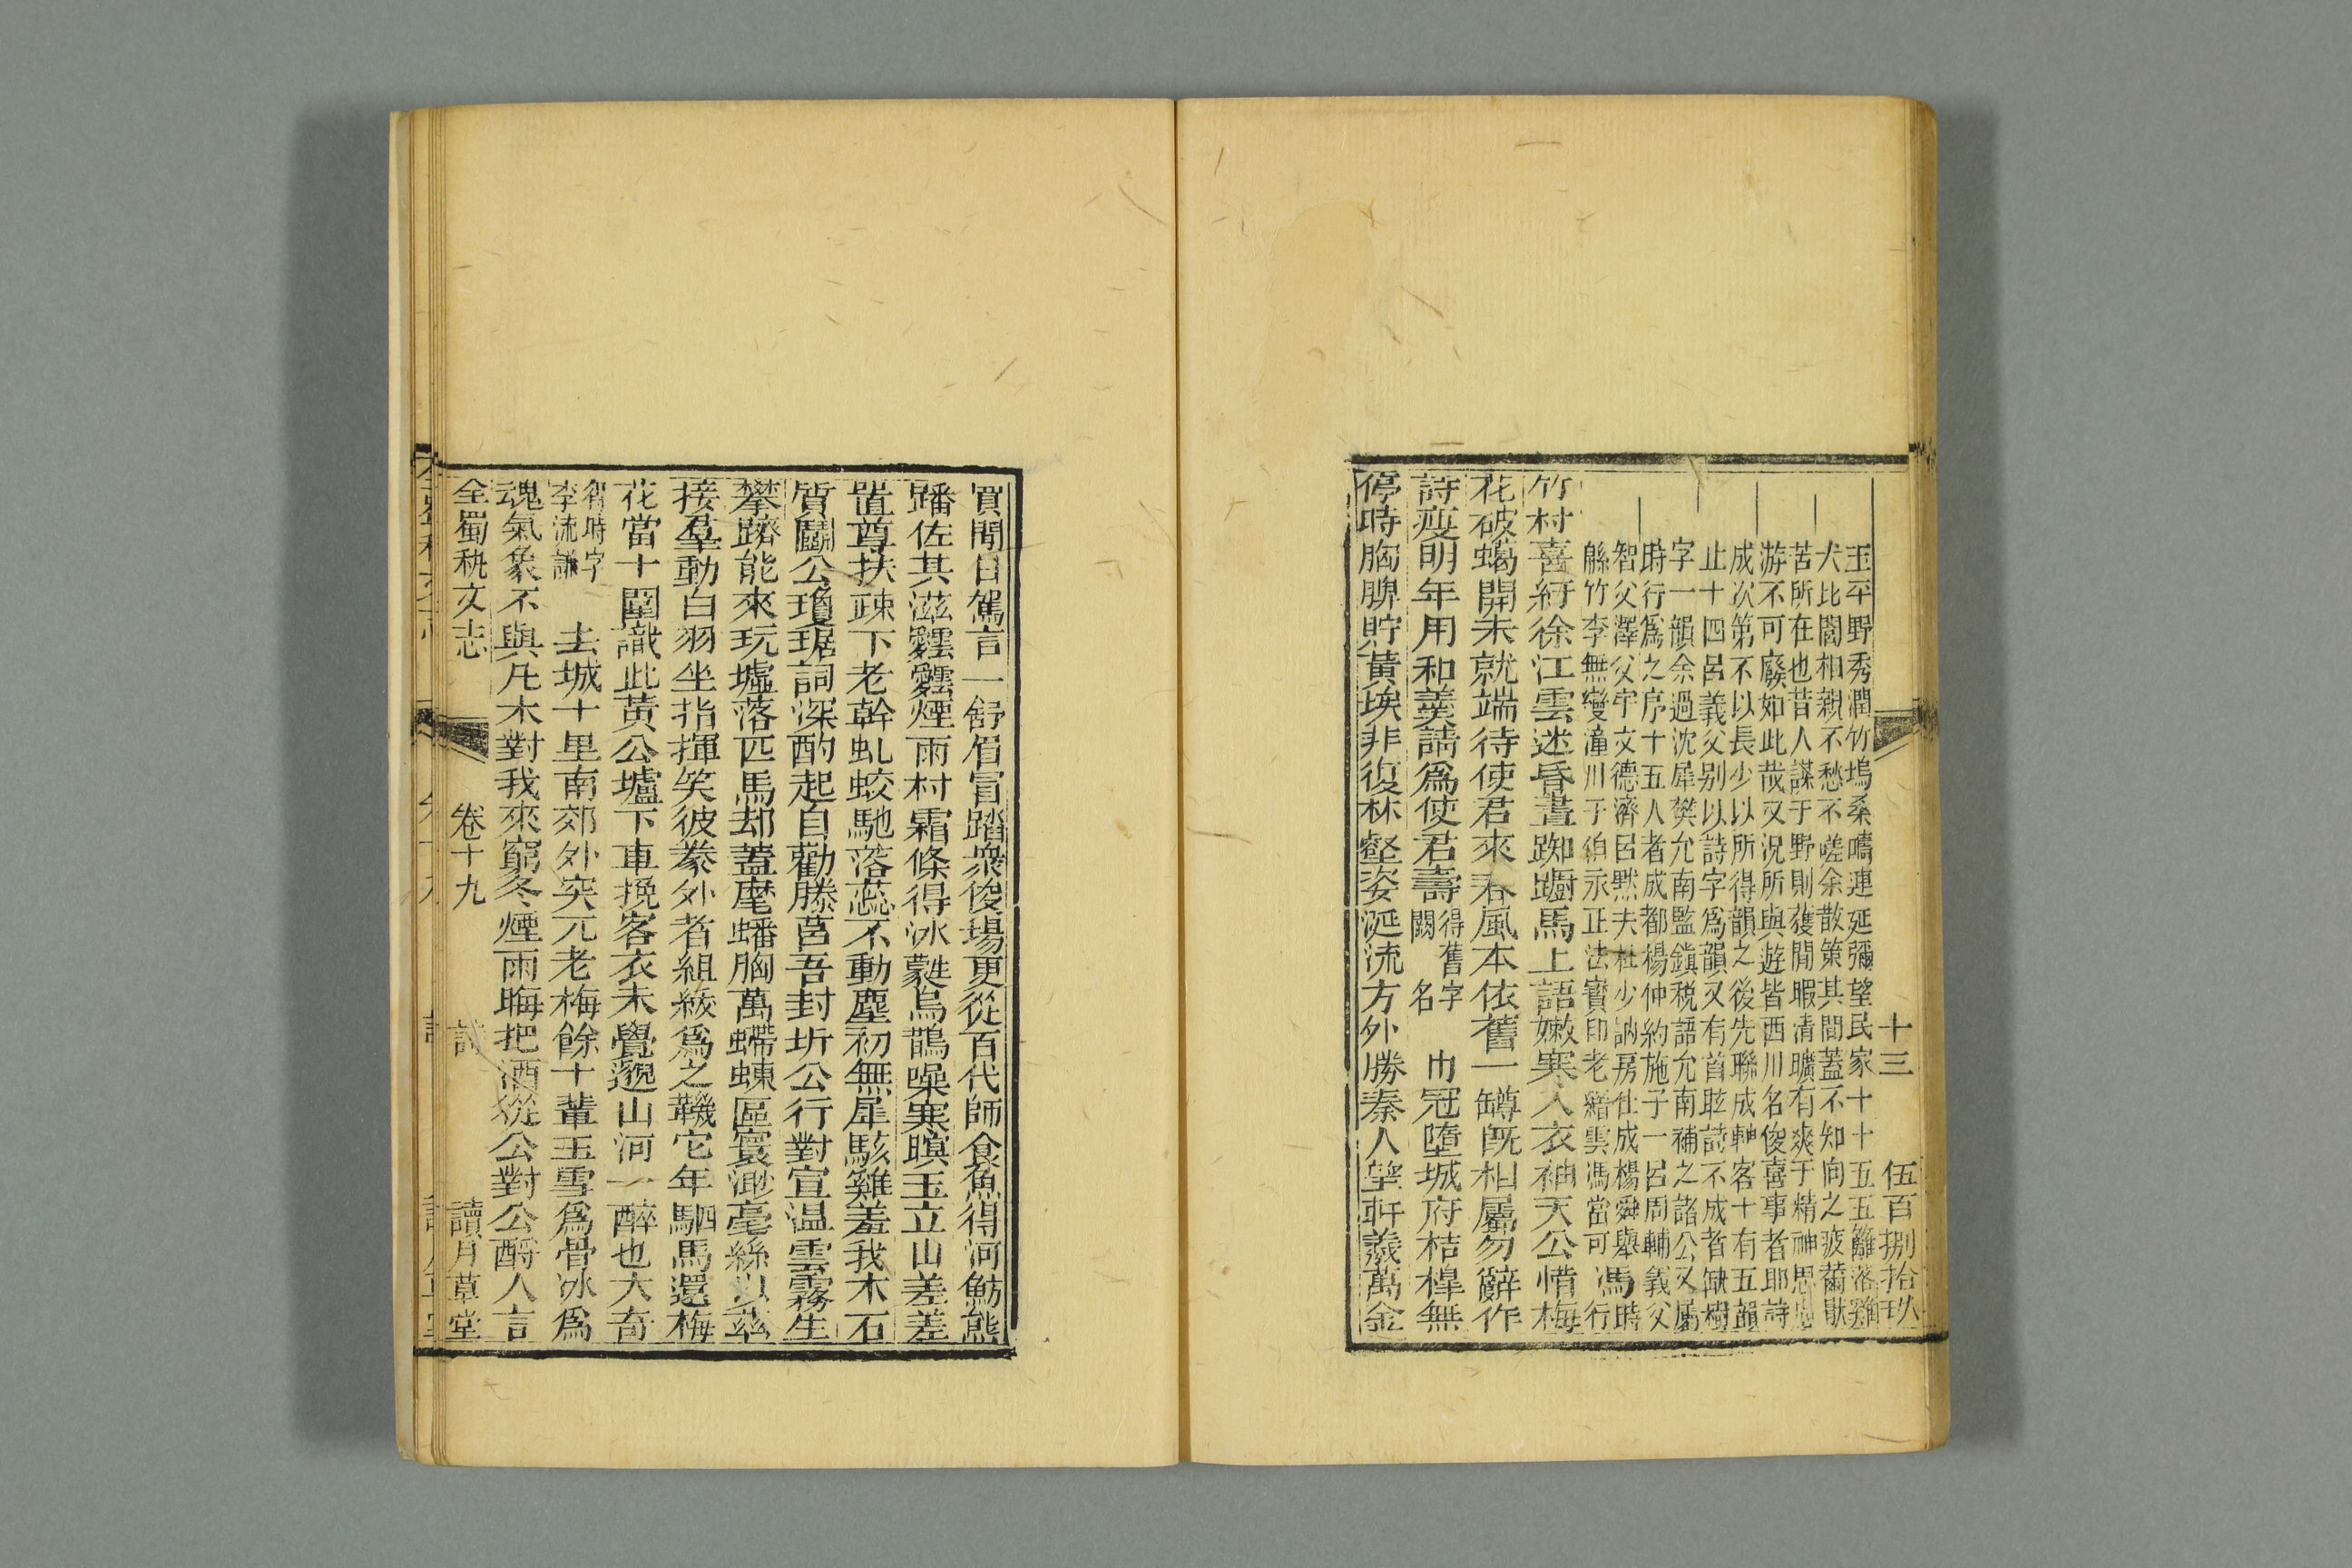 十三 伍百捌拾玖
玉平野秀潤竹塢桑疇連延彌望民家十十五五籬落雞
犬比閭相親不愁不嗟余散策其間蓋不知向之疲薾厭
苦所在也昔人謀于野則獲閒暇清曠有爽于精神思慮
游不可廢如此哉又況所與遊皆西川名俊喜事者耶詩
成次第不以長少以所得韻之後先聯成軸客十有五韻
止十四呂義父别以詩字爲韻又有首眩詩不成者缺樹
字一韻余過沈犀樊允南監鎮税語允南補之諸公又屬
時行爲之序十五人者成都楊仲約施子一呂周輔義父
智父澤父宇文德濟呂默夫杜少訥房仕成楊舜舉馮時
緜竹李無變潼川于伯永正法寶印老縉雲馮當可 行
竹村喜紆徐江雲迷昏晝踟躕馬上語嫩寒入衣袖天公惜梅
花破蝎開未就端待使君來春風本依舊一罇旣相屬勿辭作
詩瘦明年用和羹請爲使君壽 得舊字 闕名 巾冠墮城府桔槔無
停時胸脾貯黃埃非復林壑姿涎流方外勝秦人望軒羲萬金
買閒日駕言一舒眉冒踏衆俊場更從百代師食魚得河魴熊
蹯佐其滋靆靆煙雨村霜條得冰蕤烏鵲噪寒暝玉立山差差
置尊扶疎下老幹虬蛟馳落蕊不動塵初無犀駭雞羞我木石
質鬬公瓊琚詞深酌起自勸滕莒吾封圻公行對宣温雲霧生
攀躋能來玩墟落匹馬却蓋麾蟠胸萬螮蝀區寰渺毫絲以茲
接羣動白羽坐指揮笑彼豢外者組綬爲之鞿它年駟馬還梅
花當十圍識此黃公壚下車挽客衣未覺邈山河一醉也大奇
得時字 李流謙 去城十里南郊外突兀老梅餘十輩玉雪爲骨冰爲
魂氣象不與凡木對我來窮冬煙雨晦把酒從公對公酹人言
全蜀秇文志 卷十九 詩 讀月草堂